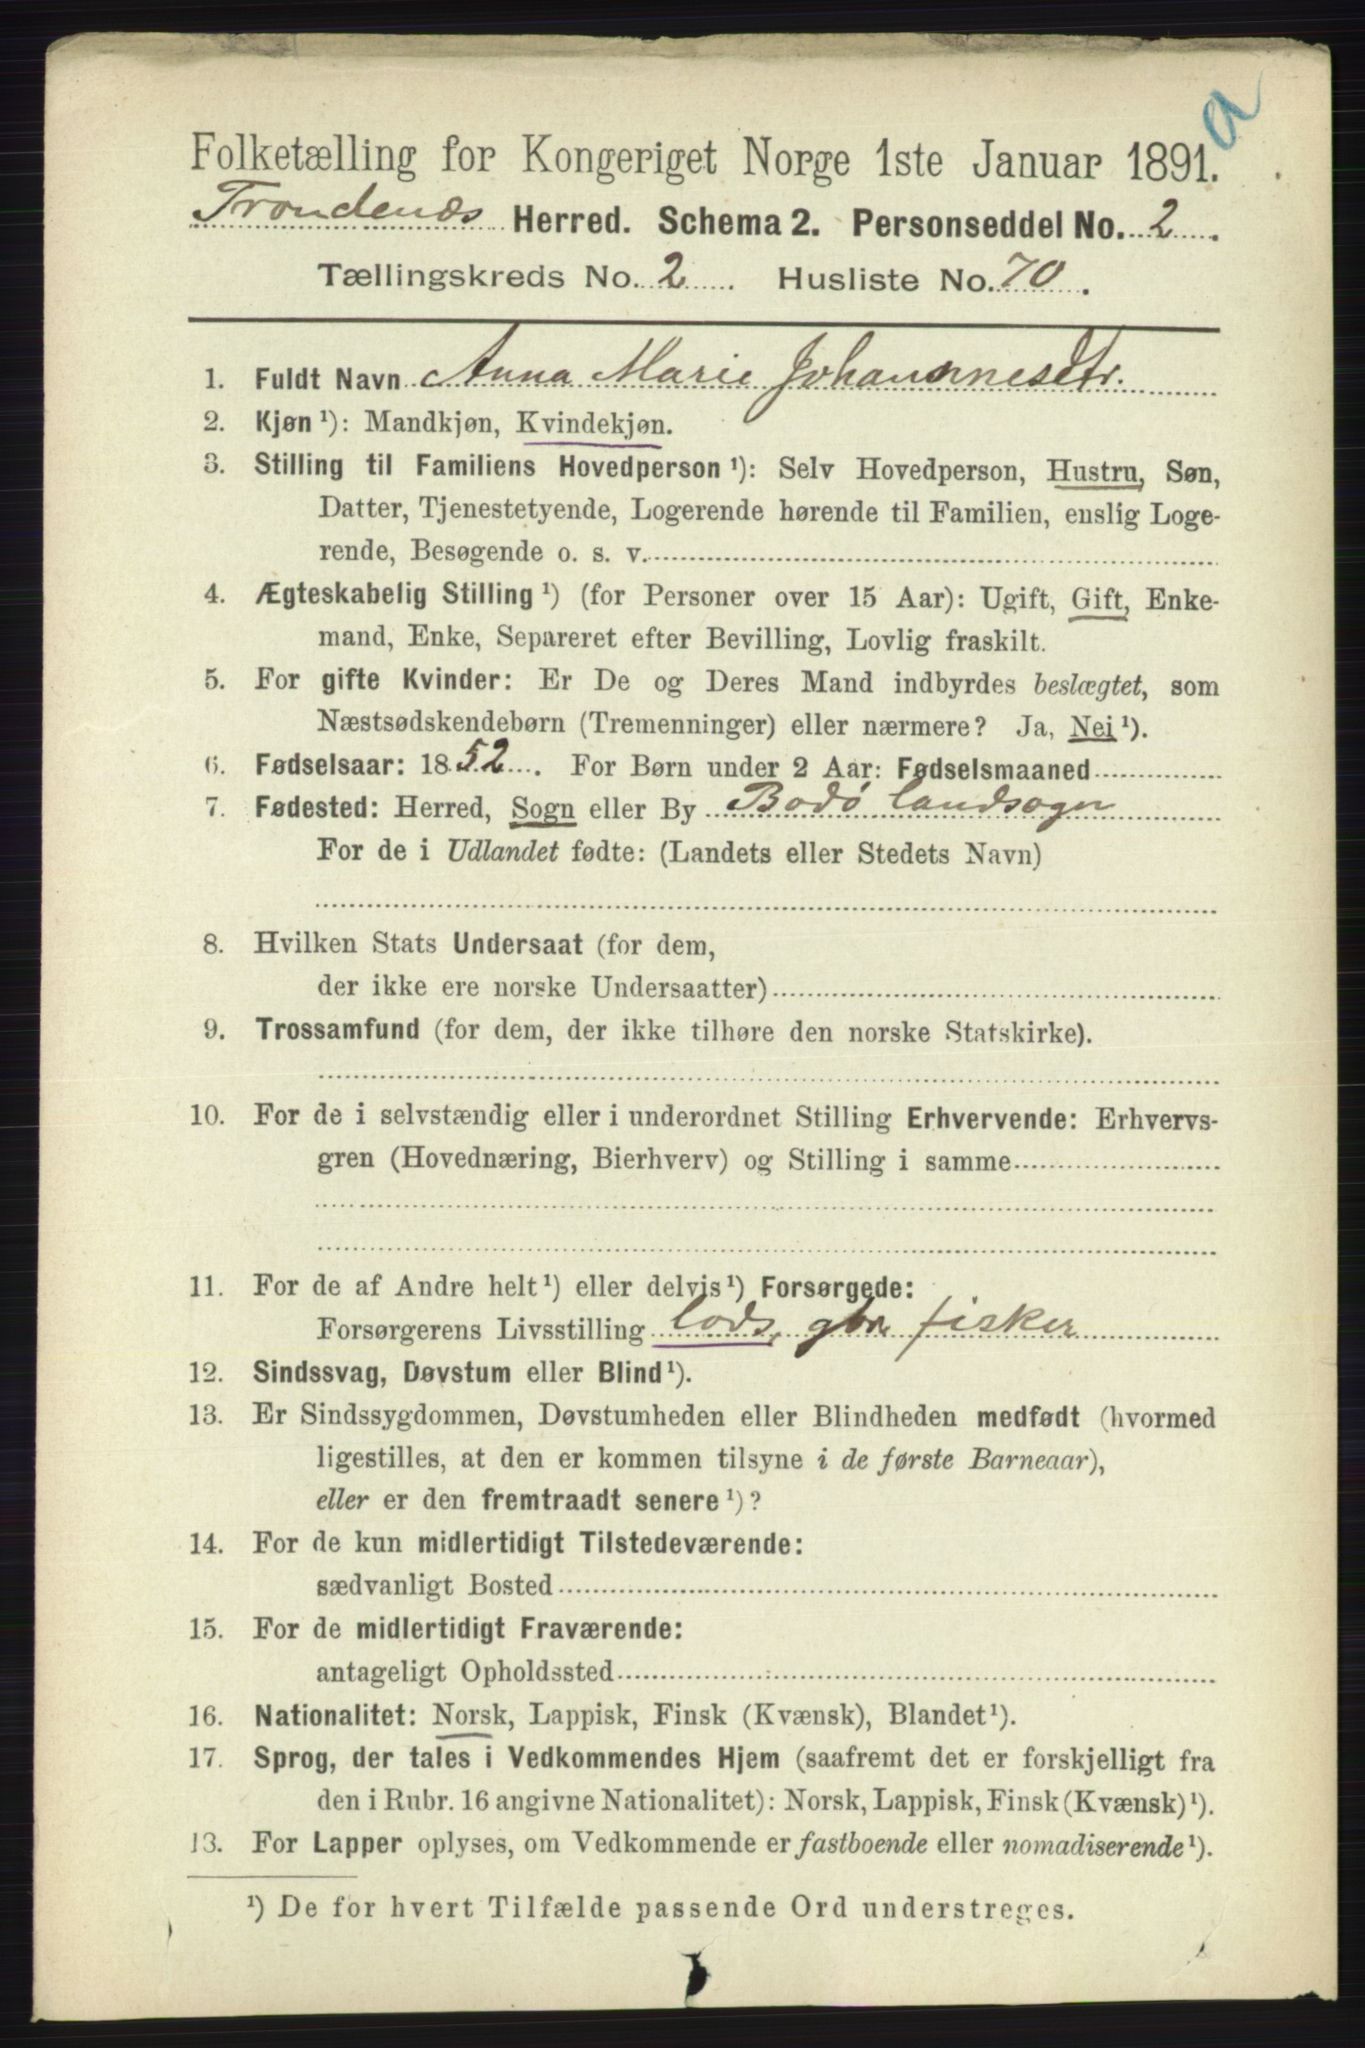 a
Folketælling for Kongeriget Norge 1ste Januar 1891.
Trondenæs Herred. Schema 2. Personseddel No. 2.
Tællingskreds No. 2. Husliste No. 70.
1. Fuldt Navn Anna Marie Johannesdtr.
2. Kjøn ¹): Mandkjøn, Kvindekjøn.
3. Stilling til Familiens Hovedperson ¹): Selv Hovedperson, Hustru, Søn,
Datter, Tjenestetyende, Logerende hørende til Familien, enslig Loge-
rende, Besøgende o. s. v.
4. Ægteskabelig Stilling ¹) (for Personer over 15 Aar): Ugift, Gift, Enke-
mand, Enke, Separeret efter Bevilling, Lovlig fraskilt.
5. For gifte Kvinder: Er De og Deres Mand indbyrdes beslægtet, som
Næstsødskendebørn (Tremenninger) eller nærmere? Ja, Nei ¹).
6. Fødselsaar: 1852. For Børn under 2 Aar: Fødselsmaaned
7. Fødested: Herred, Sogn eller By Bodø landsogn
For de i Udlandet fødte: (Landets eller Stedets Navn)
8. Hvilken Stats Undersaat (for dem,
der ikke ere norske Undersaatter)
9. Trossamfund (for dem, der ikke tilhøre den norske Statskirke).
10. For de i selvstændig eller i underordnet Stilling Erhvervende: Erhvervs-
gren (Hovednæring, Bierhverv) og Stilling i samme
11. For de af Andre helt ¹) eller delvis ¹) Forsørgede:
Forsørgerens Livsstilling lods, gbr fisker
12. Sindssvag, Døvstum eller Blind ¹).
13. Er Sindssygdommen, Døvstumheden eller Blindheden medfødt (hvormed
ligestilles, at den er kommen tilsyne i de første Barneaar),
eller er den fremtraadt senere ¹)?
14. For de kun midlertidigt Tilstedeværende:
sædvanligt Bosted
15. For de midlertidigt Fraværende:
antageligt Opholdssted
16. Nationalitet: Norsk, Lappisk, Finsk (Kvænsk), Blandet ¹).
17. Sprog, der tales i Vedkommendes Hjem (saafremt det er forskjelligt fra
den i Rubr. 16 angivne Nationalitet): Norsk, Lappisk, Finsk (Kvænsk) ¹).
13. For Lapper oplyses, om Vedkommende er fastboende eller nomadiserende ¹).
¹) De for hvert Tilfælde passende Ord understreges.